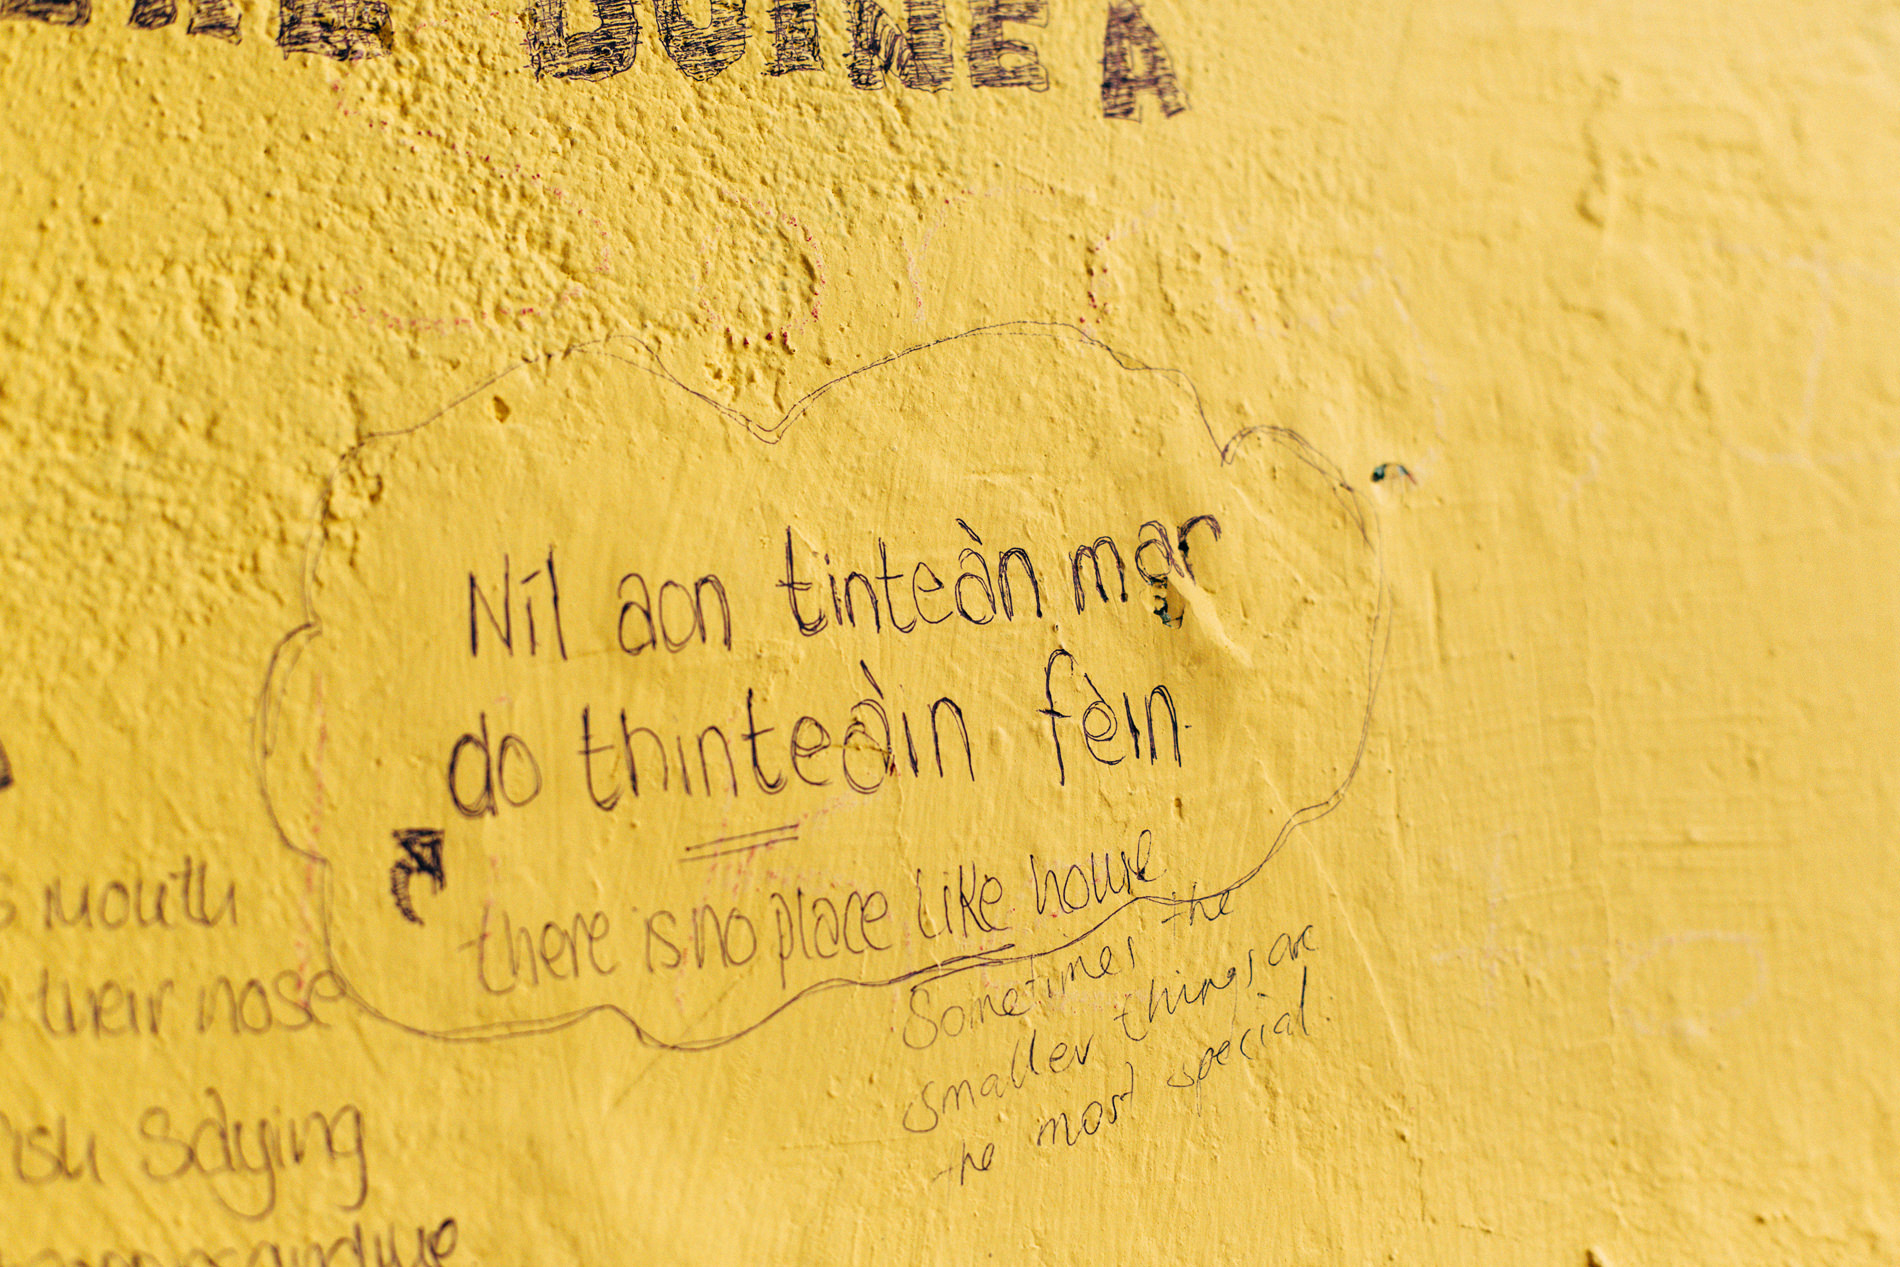 GUINEA
Níl aon tinteàn mar
do thinteàin fèin
there is no place like home
Sometimes the
smaller things are
the most special.
mouth
their nose
ish saying